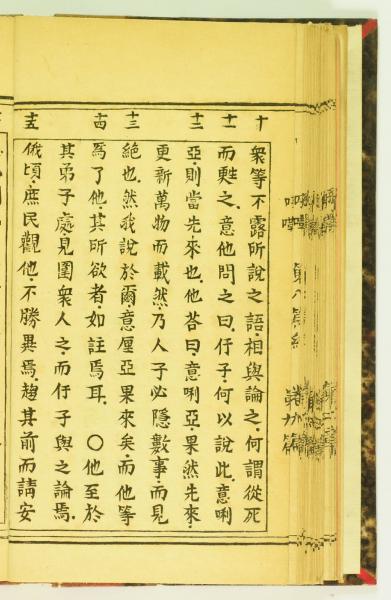 十 十一 十二 十三 十四 十五
衆等不露所說之語.相與論之.何謂從死
而甦之.意他問之曰.仔子何以說此.意唎
亞.則當先來也.他荅曰.意唎亞.果然先來.
更新萬物而載然.乃人子必隱數事.而見
絶也.然我說於爾.意厘亞果來矣.而他等
爲了他.其所欲者.如註焉耳.〇他至於
其弟子處.見圍衆人之.而仔子與之論焉.
俄頃.庶民觀他.不勝異焉.趨其前而請安